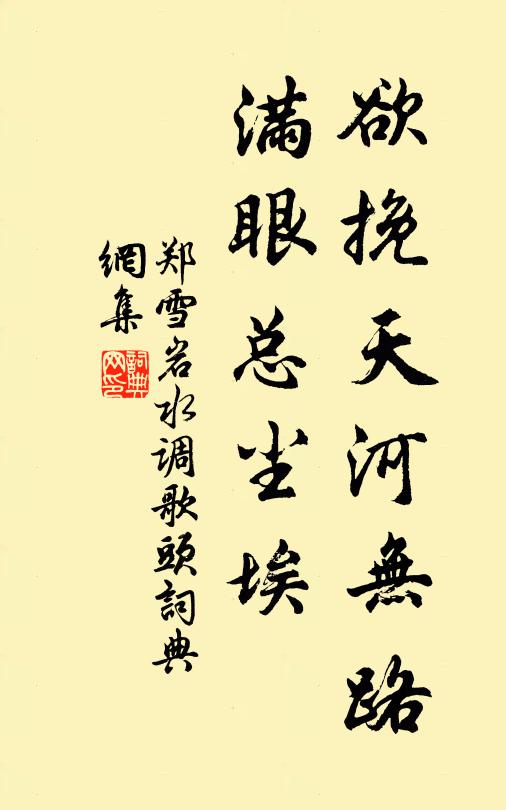 欲挽天河無路
满眼总尘埃
郑雪岩水调歌頭詞典
網集
詞典
网印